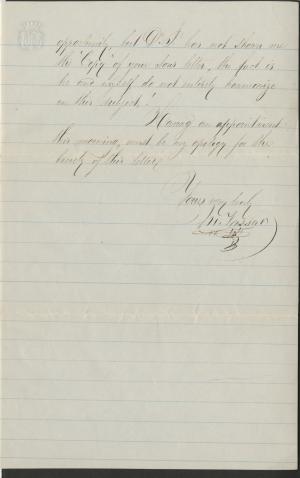 opportunity, but D. J. has not shown me
the "Copy" of your last letter, the fact is
he and myself do not entirely harmonize
on this subject!
Having an appointment
this morning, must be my apology for the
brevity of this letter
Yours very truly